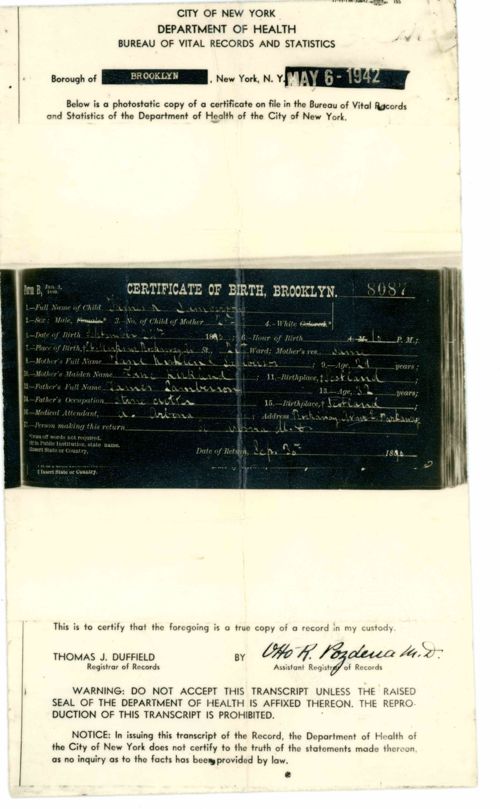 CITY OF NEW YORK
DEPARTMENT OF HEALTH
BUREAU OF VITAL RECORDS AND STATISTICS
Borough of BROOKLYN, New York, N. Y. MAY 6-1942
Below is a photostatic copy of a certificate on file in the Bureau of Vital Records
and Statistics of the Department of Health of the City of New York.
CERTIFICATE OF BIRTH, BROOKLYN. 8087
1.—Full Name of Child James
2.—Sex: Male, Female* 3.—No. of Child of Mother 4.—White Colored.*
5.—Date of Birth 6.—Hour of Birth A. M. P. M.;
7.—Place of Birth, St., Ward; Mother's res. same
8.—Mother's Full Name 9.—Age, years;
10.—Mother's Maiden Name 11.—Birthplace, Scotland;
12.—Father's Full Name James Lamberson 13.—Age, 32 years;
14.—Father's Occupation Stone cutter 15.—Birthplace, Scotland;
16.—Medical Attendant, Address
17.—Person making this return M.D.
*Run off words not required.
If in Public Institution, state name.
‡Insert State or Country.
Date of Return, Sep. 30 189
‡Insert State or Country.
This is to certify that the foregoing is a true copy of a record in my custody.
THOMAS J. DUFFIELD BY Otto R. Pozdena M.D.
Registrar of Records Assistant Registrar of Records
WARNING: DO NOT ACCEPT THIS TRANSCRIPT UNLESS THE RAISED
SEAL OF THE DEPARTMENT OF HEALTH IS AFFIXED THEREON. THE REPRO-
DUCTION OF THIS TRANSCRIPT IS PROHIBITED.
NOTICE: In issuing this transcript of the Record, the Department of Health of
the City of New York does not certify to the truth of the statements made thereon,
as no inquiry as to the facts has been provided by law.